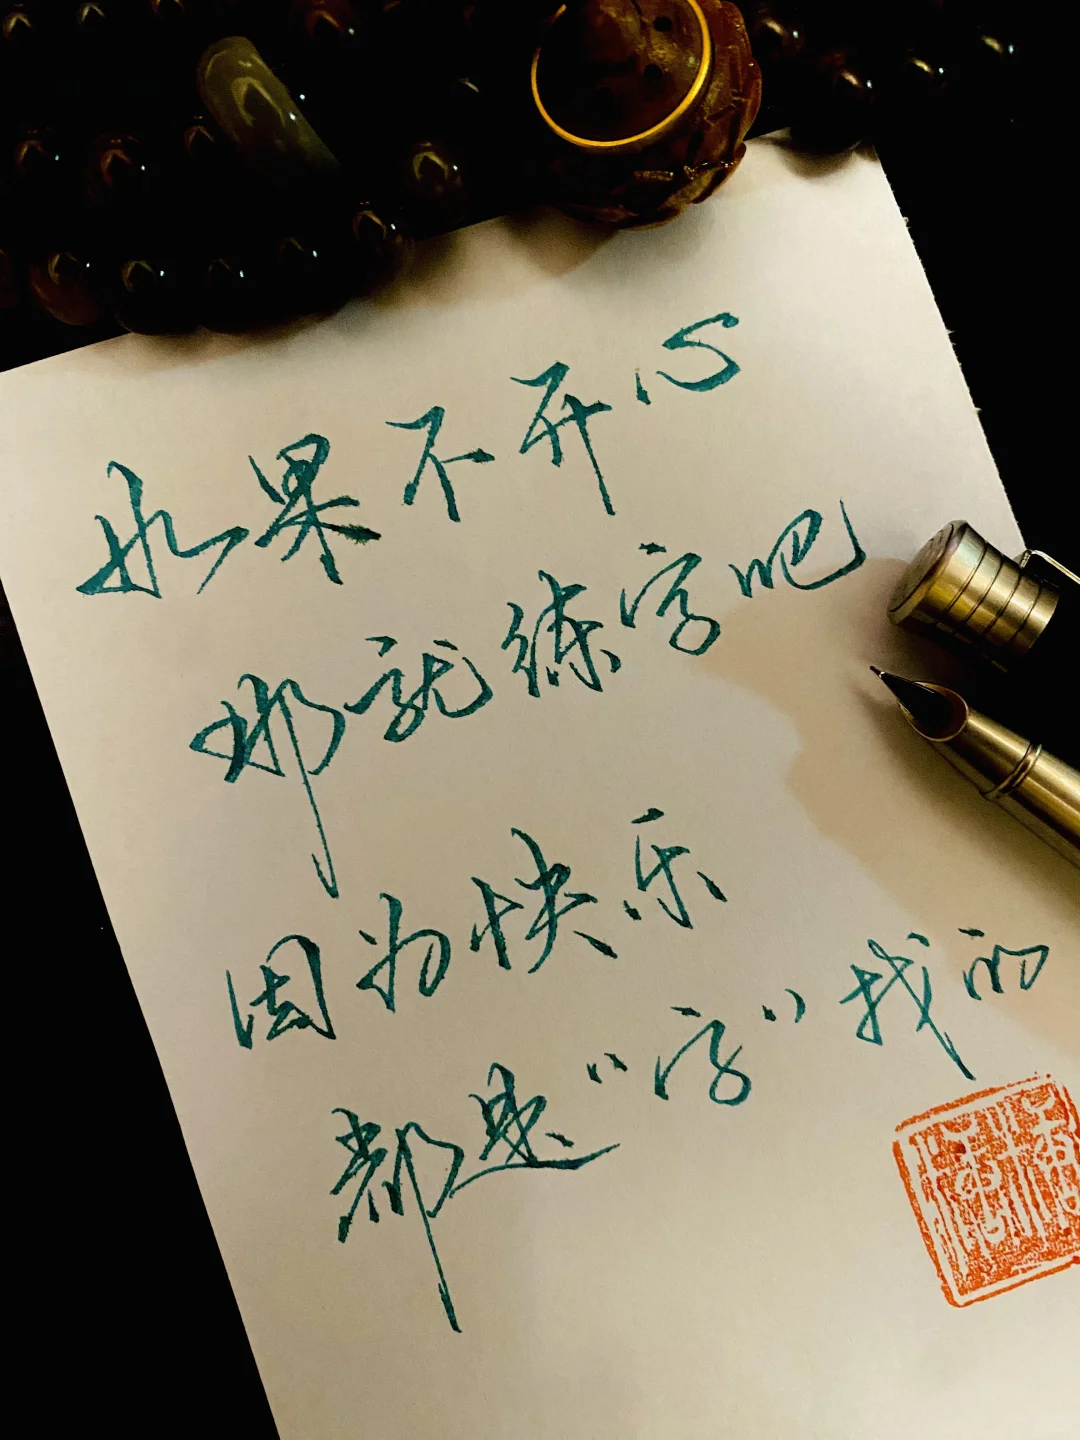 如果不开心
那就练字吧
因为快乐
都是“字”找的